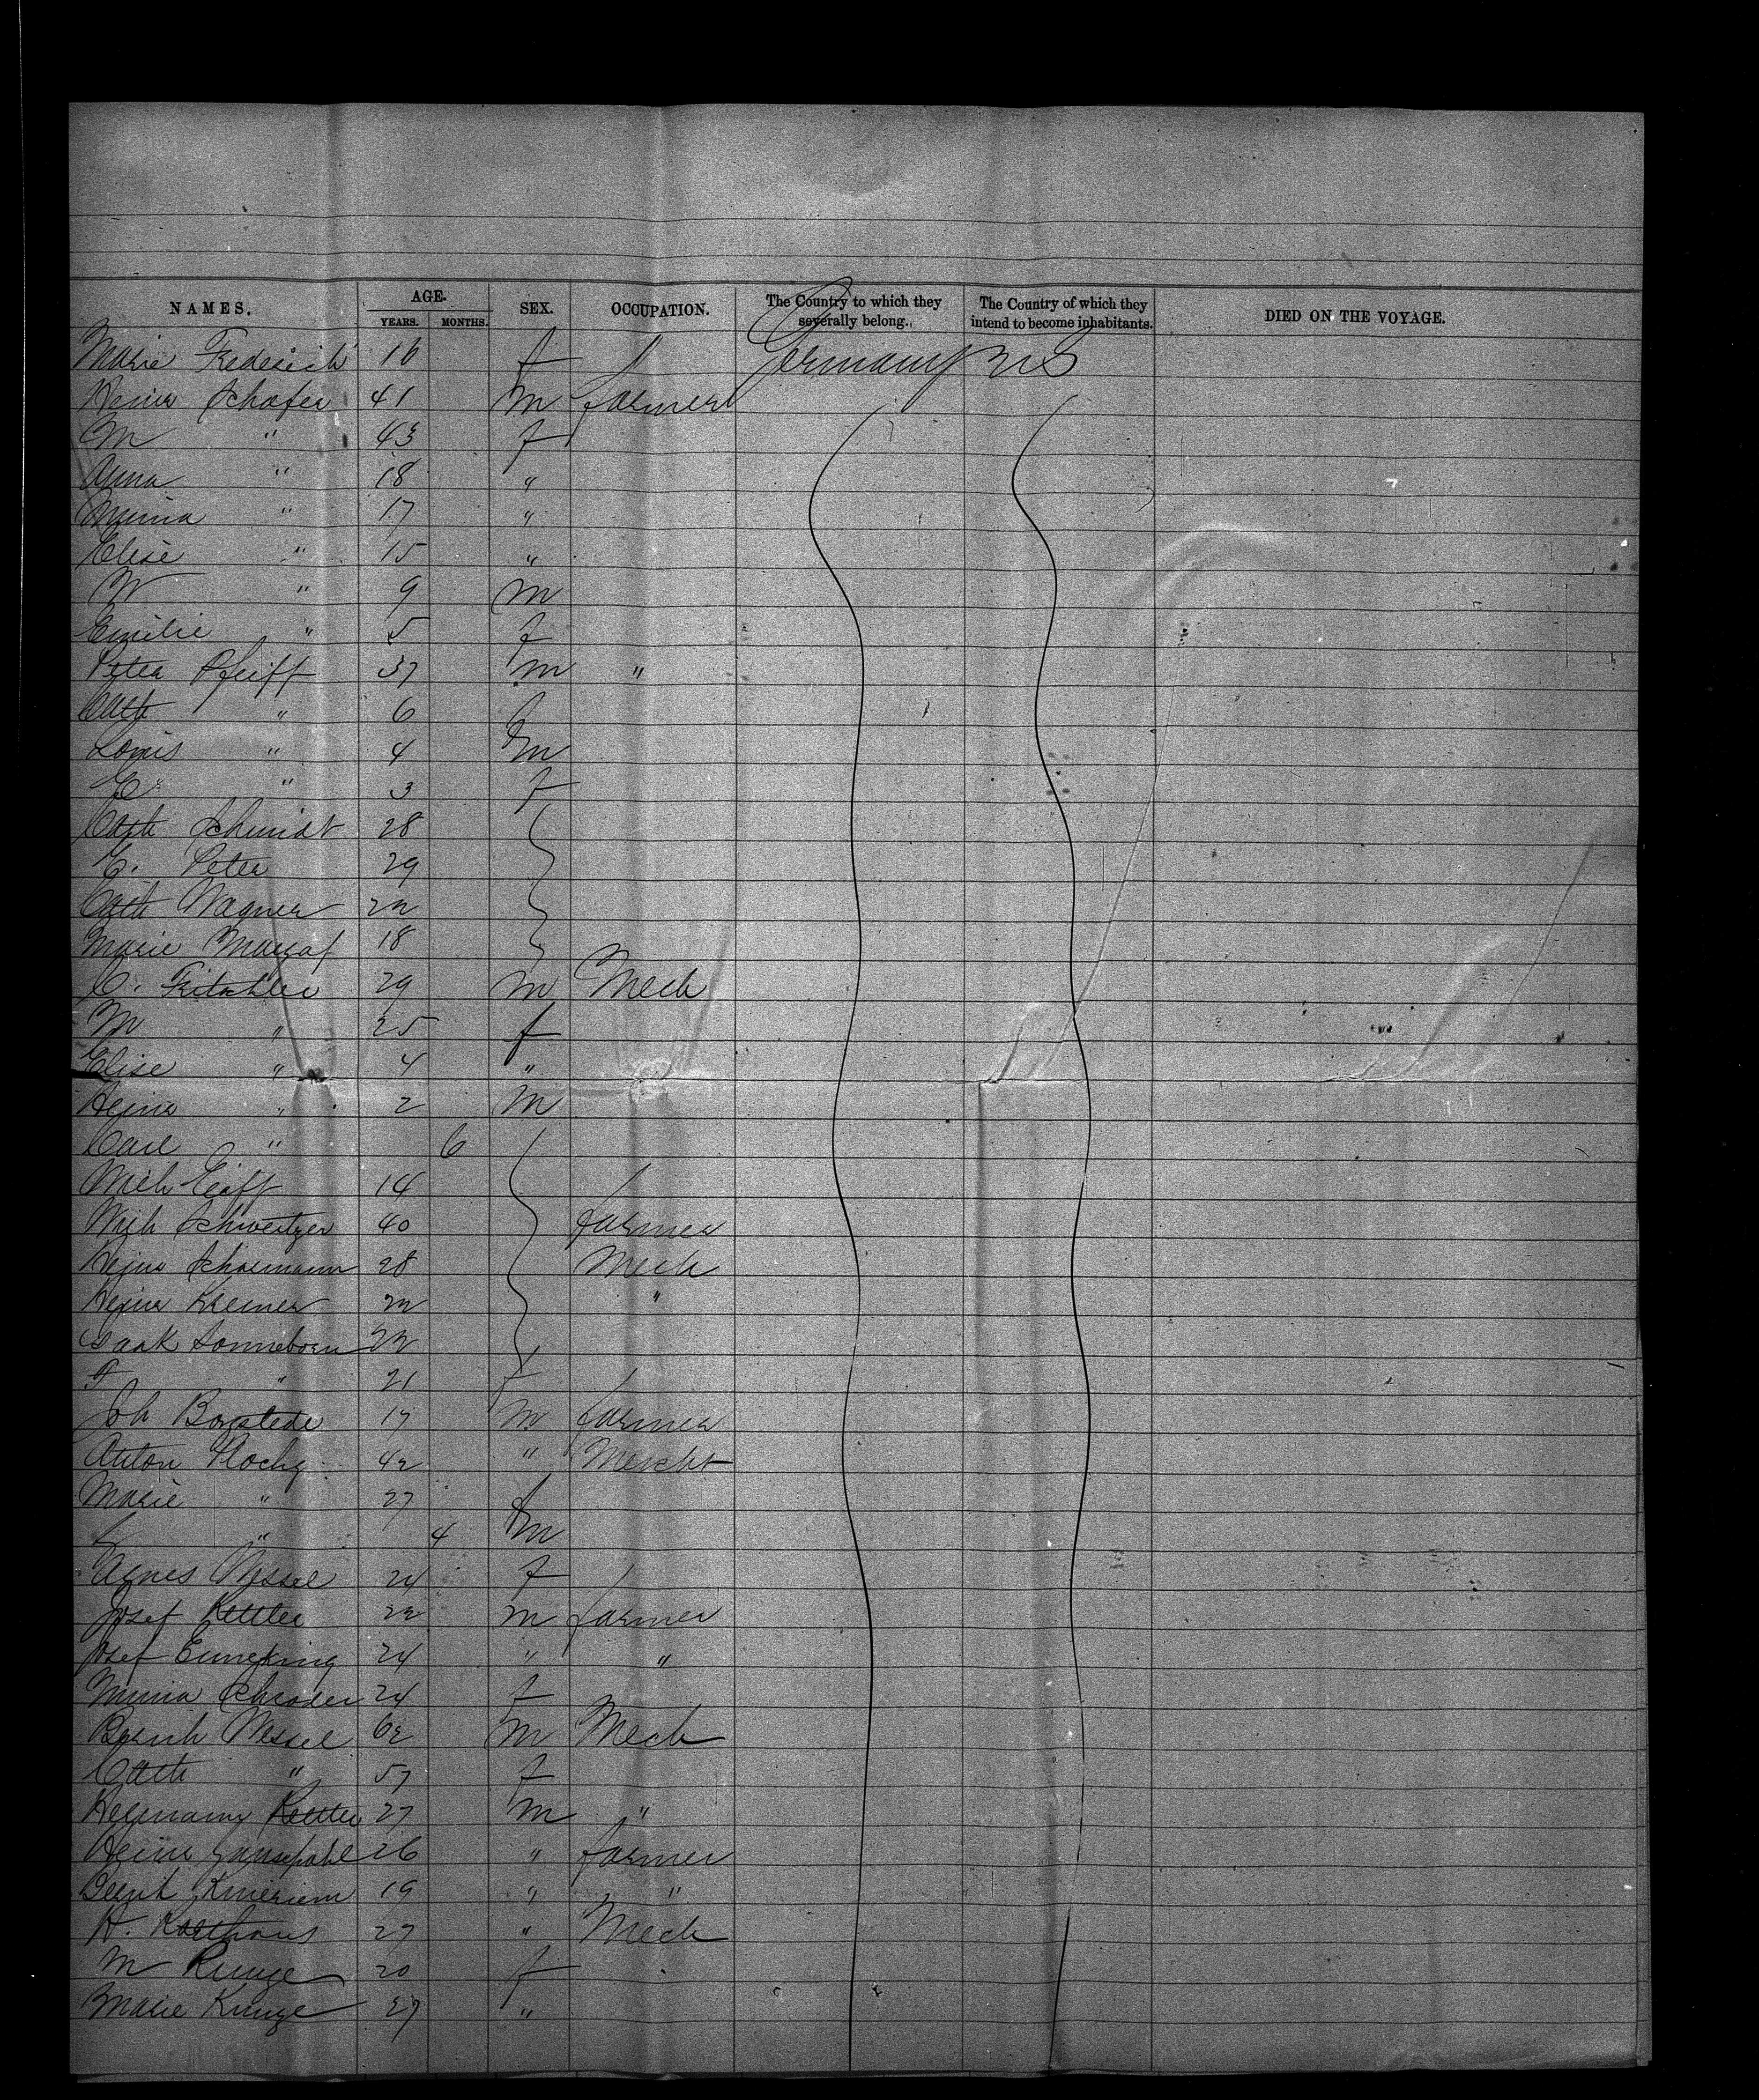 NAMES. AGE. YEARS. MONTHS. SEX. OCCUPATION. The Country to which they severally belong. The Country of which they intend to become inhabitants. DIED ON THE VOYAGE.
Marie Frederich 16 f Germany U S
Heinr Schafer 41 m farmer
M " 43 f
Anna " 18 "
Minna " 17 "
Elise " 15 "
W " 9 m
Emilie " 5 f
Peter Pfeiff 37 m "
Cath " 6 f
Louis " 4 m
C " 3 f
Cath Schmidt 28
C. Peter 29
Cath Wagner 22
Marie 18
C. 29 m Mech
M " 25 f
Elise " 4 "
Heinr " 2 m
Carl " 6
Mich 14
Mich Schweitzer 40 farmer
Heinr Schormann 28 Mech
Heinr Kremer 22 "
Isaak Sonneborn 22
F " 21 f
Joh Borgstede 17 m farmer
Anton 42 " Mercht
Marie " 27 f
" 4 m
Agnes Wessel 24 f
Josef Kettler 22 m farmer
Josef 24 " "
Minna Schroder 24 f
Bernh Wessel 62 m Mech
Cath " 57 f
Hermann Kettler 27 m "
Heinr 26 " farmer
Bernh 19 " "
H. 27 " Mech
M Runge 20 f
Marie Runge 27 "